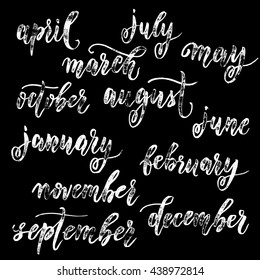 april
july
may
march
october
august
june
january
february
november
december
september
shutterstock.com · 438972814